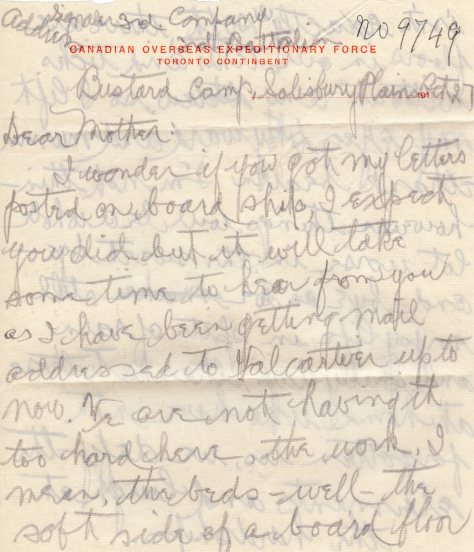 Address Signaler 3d Company
3rd Battalion no 9749
CANADIAN OVERSEAS EXPEDITIONARY FORCE
TORONTO CONTINGENT
Bustard Camp, Salisbury Plain Oct 27 191
Dear Mother.
I wonder if you got my letters
posted on board ship, I expect
you did but it will take
some time to hear from you
as I have been getting mail
addressed to Valcartier up to
now. We are not having it
too hard here, the work, I
mean, the beds - well - the
soft side of a board floor